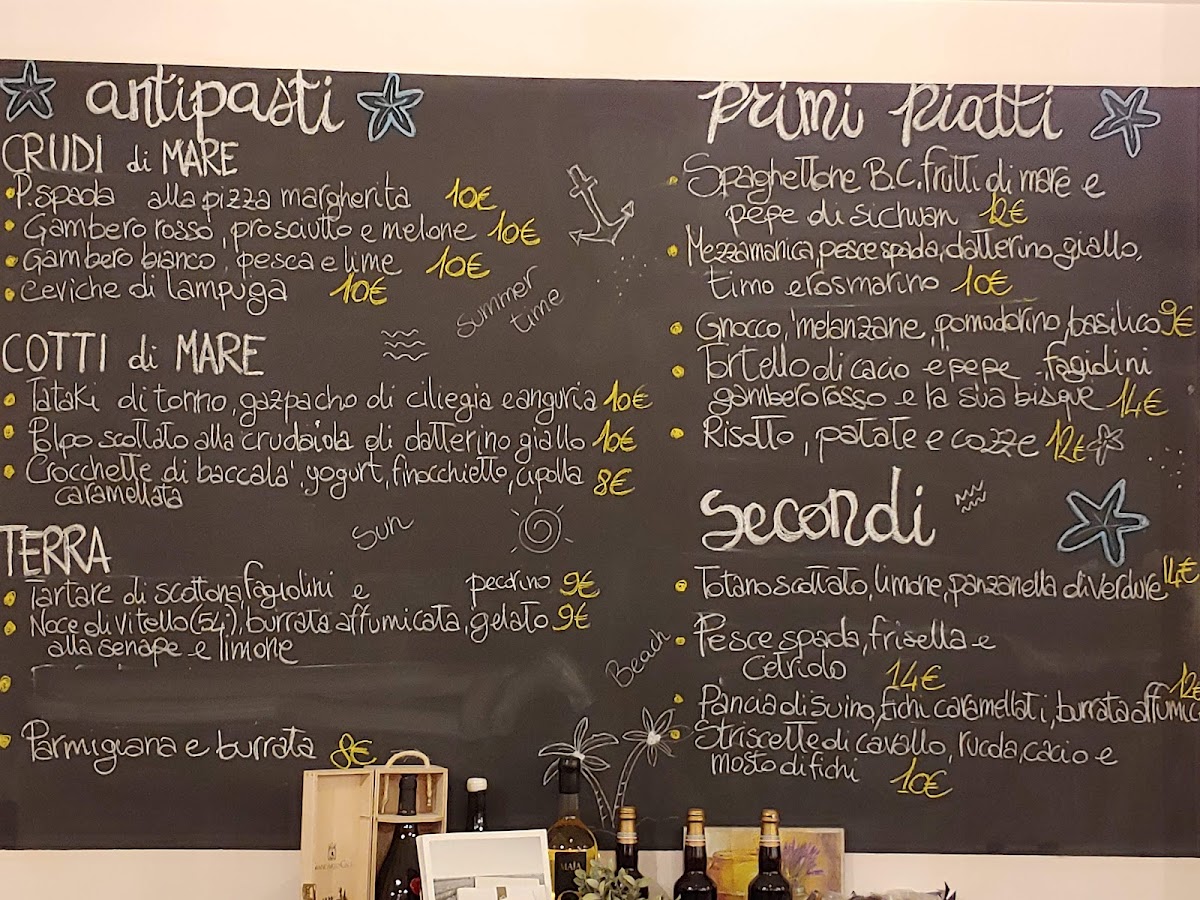 antipasti
CRUDI di MARE
P.spada alla pizza margherita 10€
Gambero rosso, prosciutto e melone 10€
Gambero bianco, pesca e lime 10€
Ceviche di lampuga 10€
COTTI di MARE
Tataki di tonno, gazpacho di ciliegia e anguria 10€
Polpo scottato alla crudaiola di datterino giallo 10€
Crocchette di baccala', yogurt, finocchietto, cipolla 8€
caramellata
TERRA
Tartare di scottona fagiolini e pecorino 9€
Noce di vitello (54°), burrata affumicata, gelato 9€
alla senape e limone
Parmigiana e burrata 8€
summer
time
sun
Beach
primi piatti
Spaghettone B.C. frutti di mare e
pepe di sichuan 12€
Mezzamanica, pesce spada, datterino giallo,
timo e rosmarino 10€
Gnocco, melanzane, pomodorino, basilico 9€
Tortello di cacio e pepe fagidini
gambero rosso e la sua bisque 14€
Risotto, patate e cozze 12€
secondi
Totano scottato, limone, panzanella di verdure 14€
Pesce spada, frisella e
cetriolo 14€
Pancia di suino, fichi caramellati, burrata affumic 12€
Striscette di cavallo, rucola, cacio e
mosto di fichi 10€
MAIA